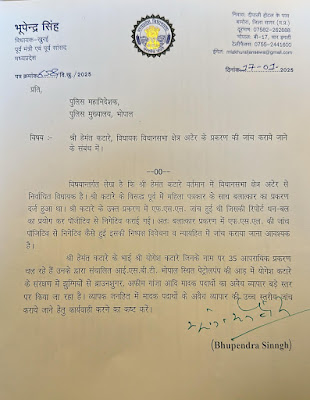 भूपेन्द्र सिंह
विधायक-खुरई
पूर्व मंत्री एवं पूर्व सांसद
मध्यप्रदेश
निवास: दीपाली होटल के पास
बामोरा, जिला सागर (म.प्र.)
दूरभाष: 07582-282888
भोपाल: बी-17, चार इमली
टेलीफैक्स: 0755-2441800
पत्र क्रमांक 658 वि.खु. / 2025
दिनांक 27-01-2025
प्रति,
पुलिस महानिदेशक,
पुलिस मुख्यालय, भोपाल
विषय :- श्री हेमंत कटारे, विधायक विधानसभा क्षेत्र अटेर के प्रकरण की जांच कराये जाने
के संबंध में।
--00--
विषयान्तर्गत लेख है कि श्री हेमंत कटारे वर्तमान में विधानसभा क्षेत्र अटेर से
निर्वाचित विधायक है। श्री कटारे के विरूद्ध पूर्व में महिला पत्रकार के साथ बलात्कार का प्रकरण
दर्ज हुआ था। श्री कटारे के उक्त प्रकरण में एफ.एस.एल. जांच हुई थी जिसकी रिपोर्ट धन-बल
का प्रयोग कर पॉजीटिव से निगेटिव कराई गई। अतः बलात्कार प्रकरण में एफ.एस.एल. की जांच
पॉजिटिव से निगेटिव कैसे हुई इसकी निष्पक्ष विवेचना व न्यायहित में जांच कराया जाना आवश्यक
है।
श्री हेमंत कटारे के भाई श्री योगेश कटारे जिनके नाम पर 35 आपराधिक प्रकरण
चल रहें हैं उनके द्वारा संचालित आई.एस.बी.टी. भोपाल स्थित पेट्रोलपंप की आड़ में योगेश कटारे
के संरक्षण में झुग्गियों से ब्राउनशुगर, अफीम गांजा आदि मादक पदार्थो का अवैध व्यापार बड़े स्तर
पर किया जा रहा है। व्यापक जनहित में मादक पदार्थो के अवैध व्यापार की उच्च स्तरीय जांच
कराये जाने हेतु कार्यवाही करने का कष्ट करें।
(Bhupendra Sinngh)